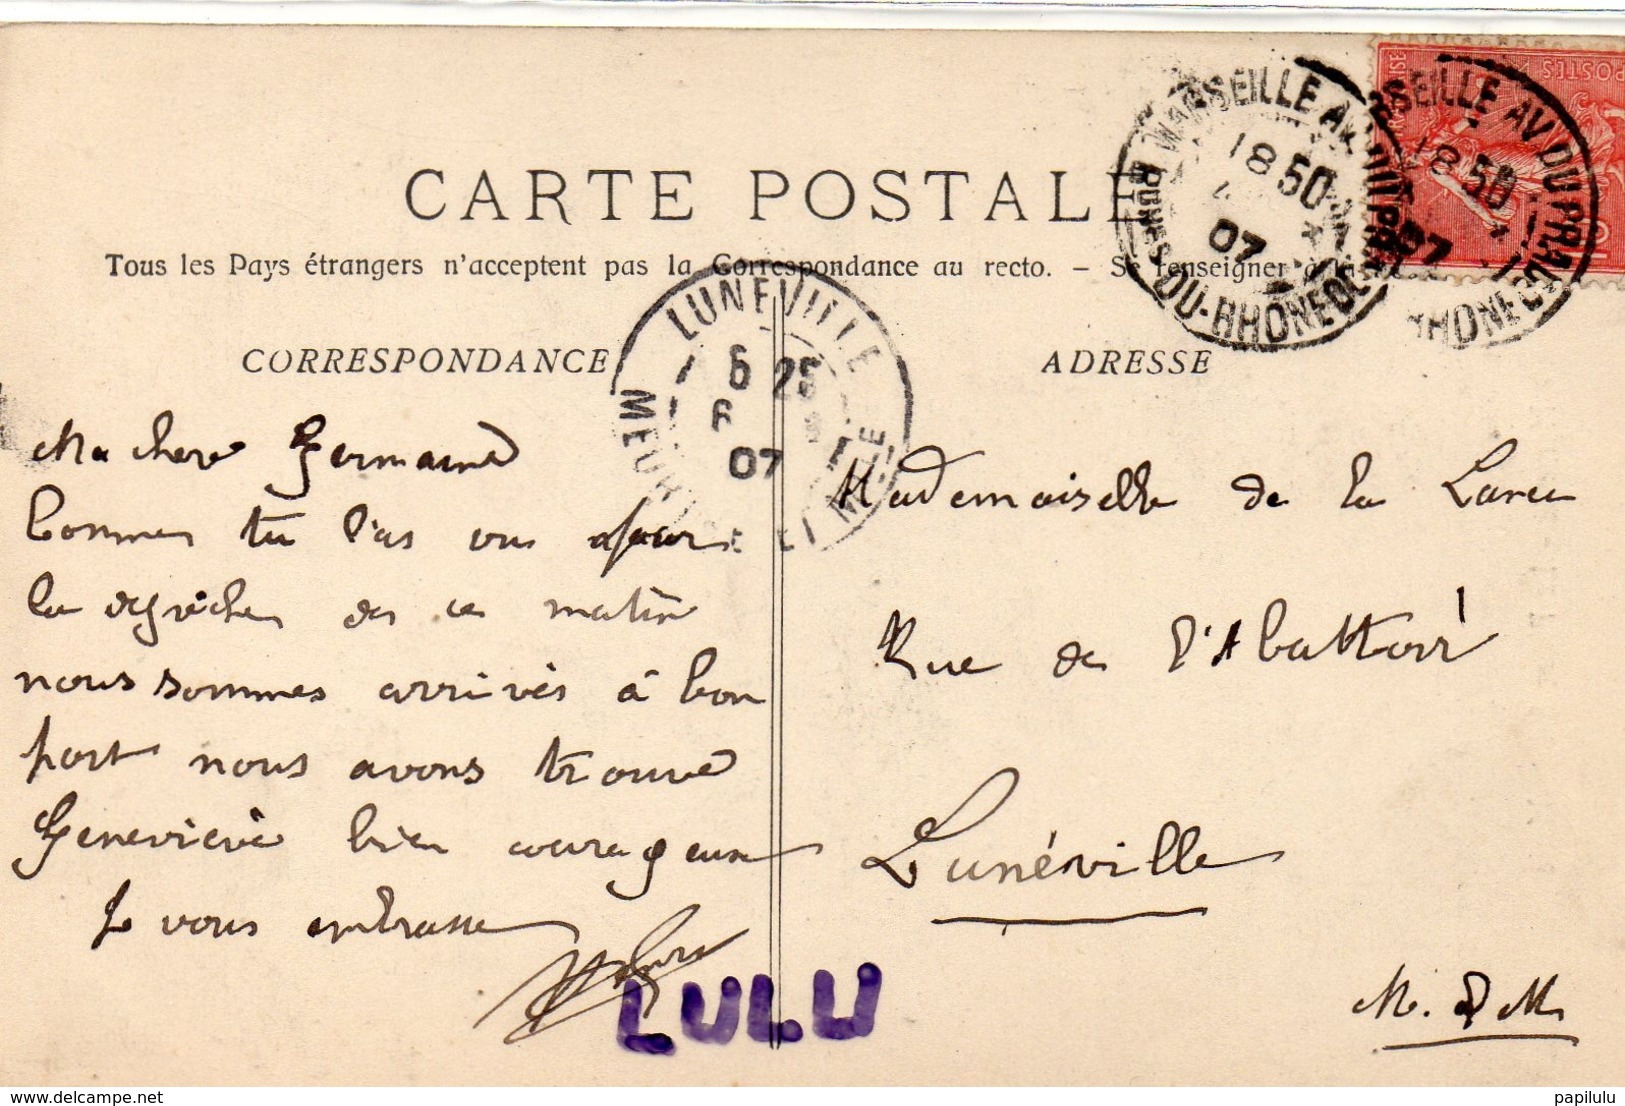 CARTE POSTALE
Tous les Pays étrangers n'acceptent pas la Correspondance au recto. - Se renseigner à la
MARSEILLE AV. DU PRADO
18 50
07
BOUCHES-DU-RHONE
SEILLE AV. DU PRADO
18 50
07
RHONE
POSTES
LUNEVILLE
6 25
6
07
MEURTHE ET M-LLE
CORRESPONDANCE
ADRESSE
Ma chere Germaine
Comme tu l'as vu par
la dépèche de ce matin
nous sommes arrivés à bon
port nous avons trouvé
Geneviève bien courageuse
Je vous embrasse
Mademoiselle de la
Rue de l'Abattoir
Lunéville
M. & M.
LULU
papilulu